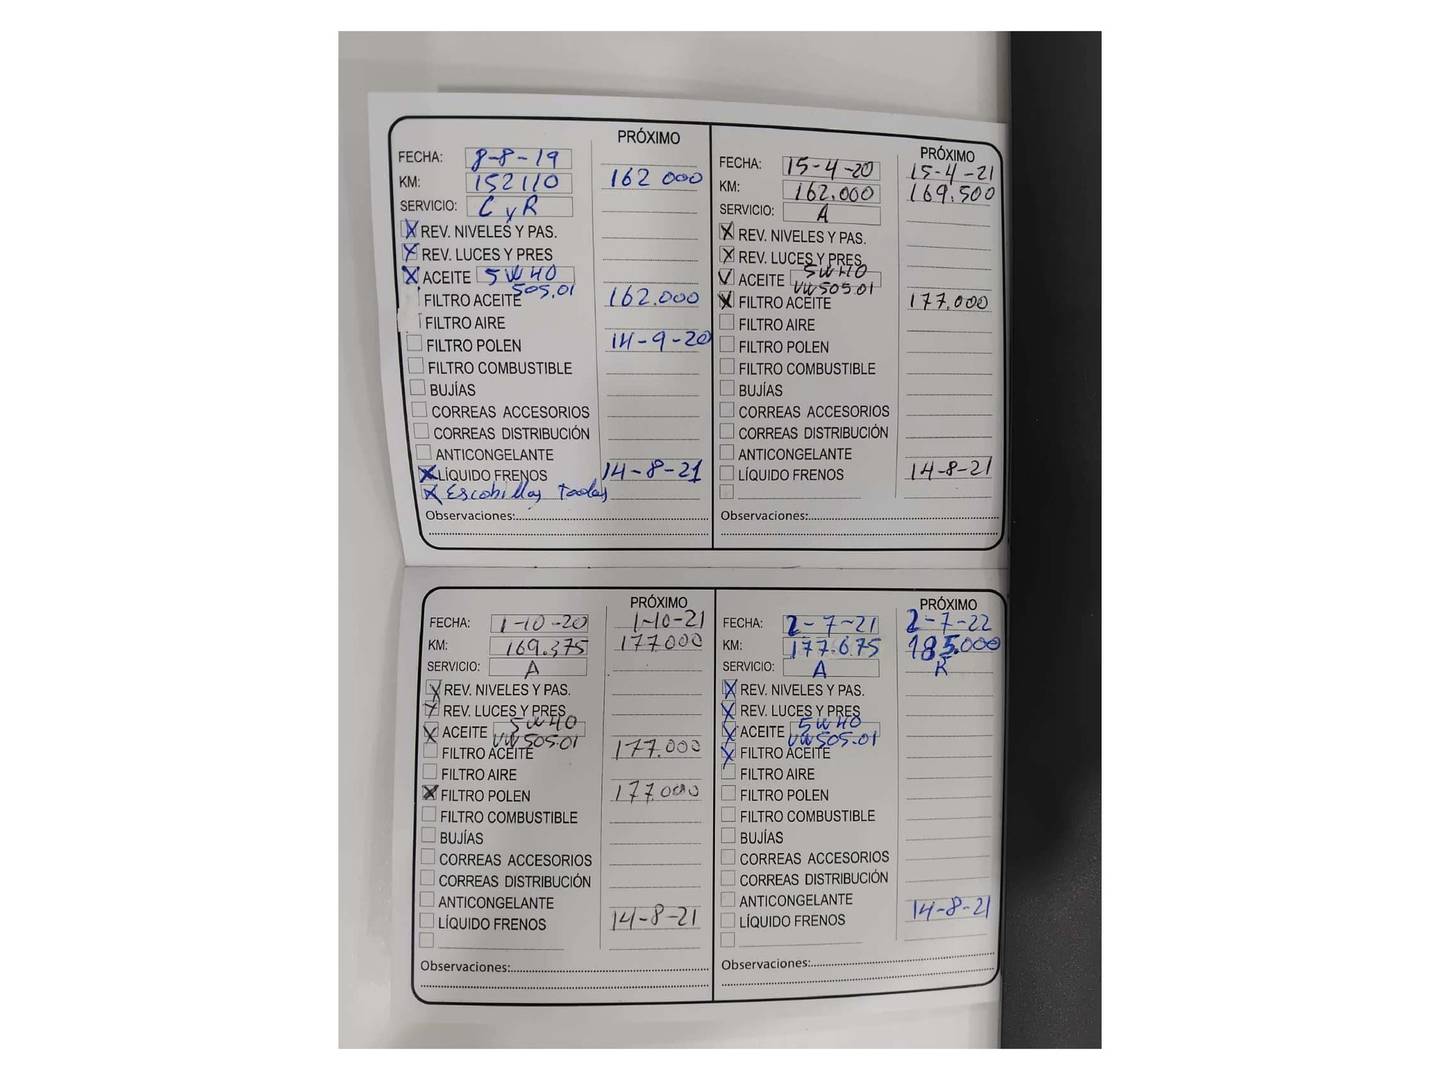 PRÓXIMO
FECHA: 8-8-19
KM: 152110 162 000
SERVICIO: C y R
X REV. NIVELES Y PAS.
X REV. LUCES Y PRES
X ACEITE 5W40
505.01
FILTRO ACEITE 162.000
FILTRO AIRE
FILTRO POLEN 14-9-20
FILTRO COMBUSTIBLE
BUJÍAS
CORREAS ACCESORIOS
CORREAS DISTRIBUCIÓN
ANTICONGELANTE
X LÍQUIDO FRENOS 14-8-21
X Escobillas todas
Observaciones:
PRÓXIMO
FECHA: 15-4-20 15-4-21
KM: 162.000 169.500
SERVICIO: A
X REV. NIVELES Y PAS.
X REV. LUCES Y PRES
ACEITE 5W40
VW 505 01
X FILTRO ACEITE 177.000
FILTRO AIRE
FILTRO POLEN
FILTRO COMBUSTIBLE
BUJÍAS
CORREAS ACCESORIOS
CORREAS DISTRIBUCIÓN
ANTICONGELANTE
LÍQUIDO FRENOS 14-8-21
Observaciones:
PRÓXIMO
FECHA: 1-10-20 1-10-21
KM: 169.375 177000
SERVICIO: A
X REV. NIVELES Y PAS.
X REV. LUCES Y PRES
X ACEITE 5W40
VW 505.01
FILTRO ACEITE 177.000
FILTRO AIRE
X FILTRO POLEN 177.000
FILTRO COMBUSTIBLE
BUJÍAS
CORREAS ACCESORIOS
CORREAS DISTRIBUCIÓN
ANTICONGELANTE
LÍQUIDO FRENOS 14-8-21
Observaciones:
PRÓXIMO
FECHA: 2-7-21 2-7-22
KM: 177.675 185.000
SERVICIO: A R
X REV. NIVELES Y PAS.
X REV. LUCES Y PRES
X ACEITE 5W40
VW 505.01
X FILTRO ACEITE
FILTRO AIRE
FILTRO POLEN
FILTRO COMBUSTIBLE
BUJÍAS
CORREAS ACCESORIOS
CORREAS DISTRIBUCIÓN
ANTICONGELANTE
LÍQUIDO FRENOS 14-8-21
Observaciones: